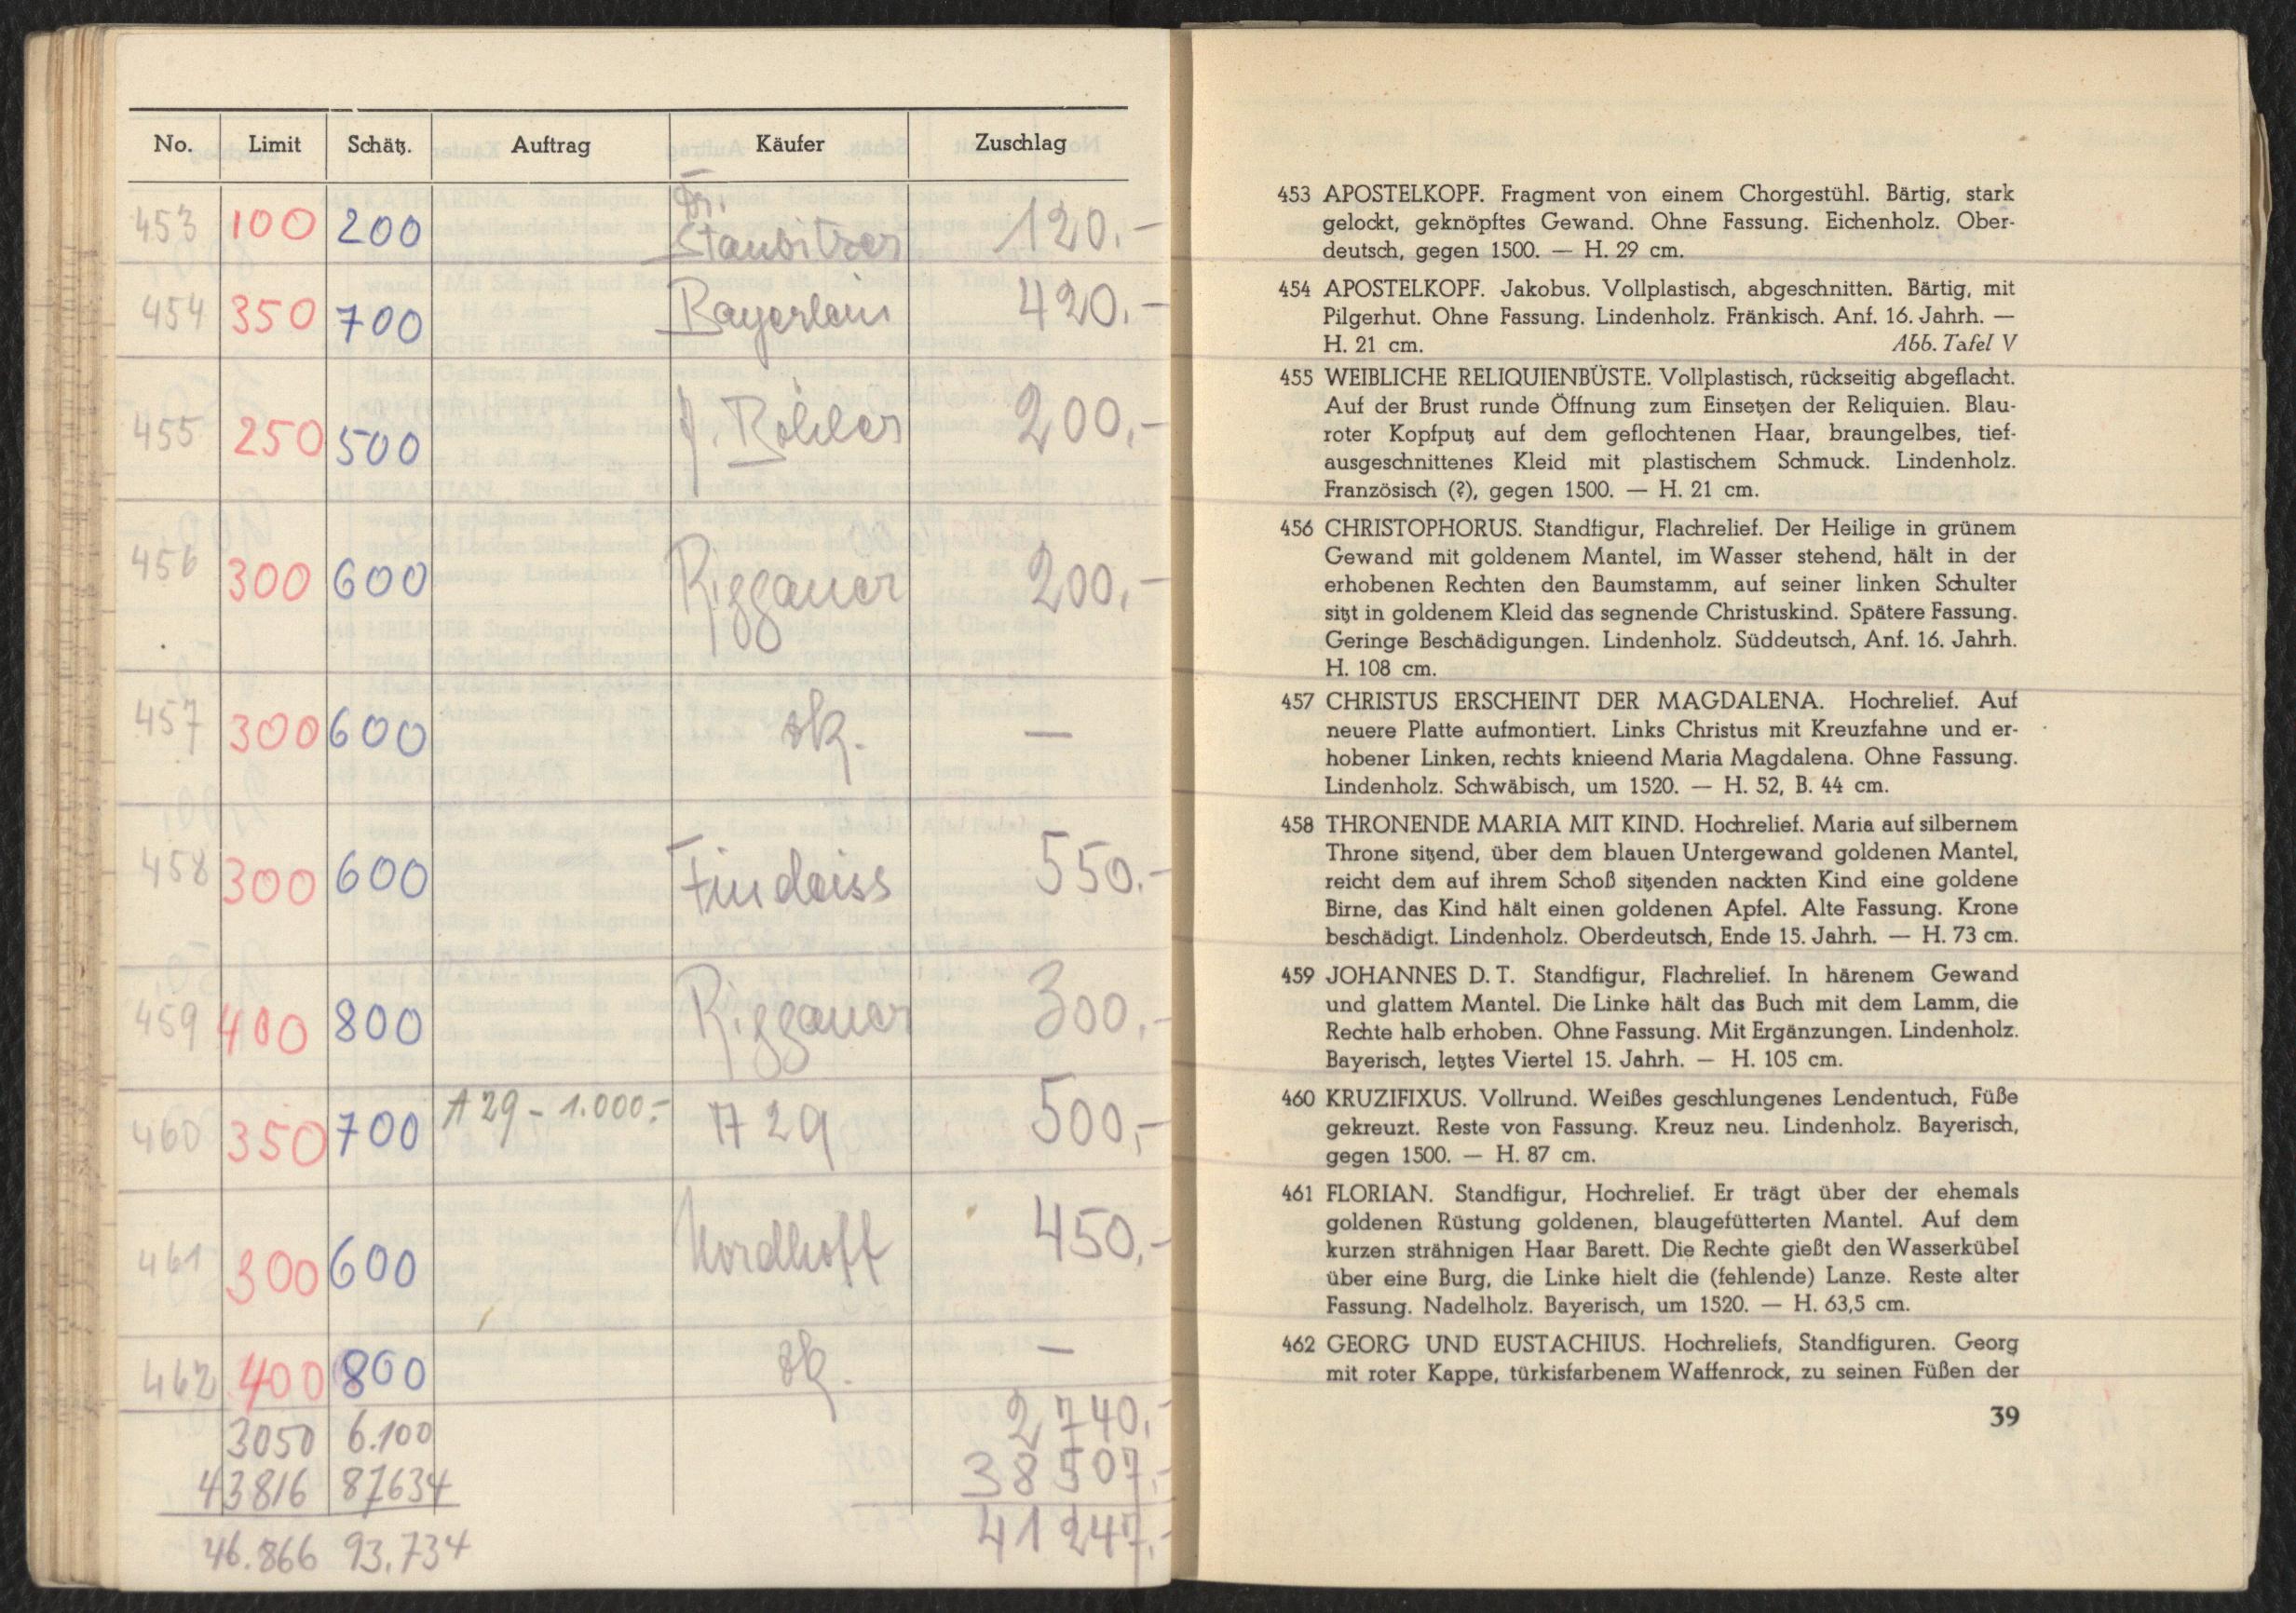 No. Limit Schätz. Auftrag Käufer Zuschlag
453 100 200 Dr. Staubitzer 120.-
454 350 700 Bayerlein 420.-
455 250 500 J. Böhler 200.-
456 300 600 Riggauer 200.-
457 300 600 zk. —
458 300 600 Findeiss 550.-
459 400 800 Riggauer 300.-
460 350 700 A 29 - 1.000.- A 29 500,-
461 300 600 Nordhoff 450,-
462 400 800 zk. —
3050 6.100 2740.-
43816 87634 38507.-
46.866 93.734 41247.-
453 APOSTELKOPF. Fragment von einem Chorgestühl. Bärtig, stark
gelockt, geknöpftes Gewand. Ohne Fassung. Eichenholz. Ober-
deutsch, gegen 1500. — H. 29 cm.
454 APOSTELKOPF. Jakobus. Vollplastisch, abgeschnitten. Bärtig, mit
Pilgerhut. Ohne Fassung. Lindenholz. Fränkisch. Anf. 16. Jahrh. —
H. 21 cm. Abb. Tafel V
455 WEIBLICHE RELIQUIENBÜSTE. Vollplastisch, rückseitig abgeflacht.
Auf der Brust runde Öffnung zum Einsetzen der Reliquien. Blau-
roter Kopfputz auf dem geflochtenen Haar, braungelbes, tief-
ausgeschnittenes Kleid mit plastischem Schmuck. Lindenholz.
Französisch (?), gegen 1500. — H. 21 cm.
456 CHRISTOPHORUS. Standfigur, Flachrelief. Der Heilige in grünem
Gewand mit goldenem Mantel, im Wasser stehend, hält in der
erhobenen Rechten den Baumstamm, auf seiner linken Schulter
sitzt in goldenem Kleid das segnende Christuskind. Spätere Fassung.
Geringe Beschädigungen. Lindenholz. Süddeutsch, Anf. 16. Jahrh.
H. 108 cm.
457 CHRISTUS ERSCHEINT DER MAGDALENA. Hochrelief. Auf
neuere Platte aufmontiert. Links Christus mit Kreuzfahne und er-
hobener Linken, rechts knieend Maria Magdalena. Ohne Fassung.
Lindenholz. Schwäbisch, um 1520. — H. 52, B. 44 cm.
458 THRONENDE MARIA MIT KIND. Hochrelief. Maria auf silbernem
Throne sitzend, über dem blauen Untergewand goldenen Mantel,
reicht dem auf ihrem Schoß sitzenden nackten Kind eine goldene
Birne, das Kind hält einen goldenen Apfel. Alte Fassung. Krone
beschädigt. Lindenholz. Oberdeutsch, Ende 15. Jahrh. — H. 73 cm.
459 JOHANNES D. T. Standfigur, Flachrelief. In härenem Gewand
und glattem Mantel. Die Linke hält das Buch mit dem Lamm, die
Rechte halb erhoben. Ohne Fassung. Mit Ergänzungen. Lindenholz.
Bayerisch, letztes Viertel 15. Jahrh. — H. 105 cm.
460 KRUZIFIXUS. Vollrund. Weißes geschlungenes Lendentuch, Füße
gekreuzt. Reste von Fassung. Kreuz neu. Lindenholz. Bayerisch,
gegen 1500. — H. 87 cm.
461 FLORIAN. Standfigur, Hochrelief. Er trägt über der ehemals
goldenen Rüstung goldenen, blaugefütterten Mantel. Auf dem
kurzen strähnigen Haar Barett. Die Rechte gießt den Wasserkübel
über eine Burg, die Linke hielt die (fehlende) Lanze. Reste alter
Fassung. Nadelholz. Bayerisch, um 1520. — H. 63,5 cm.
462 GEORG UND EUSTACHIUS. Hochreliefs, Standfiguren. Georg
mit roter Kappe, türkisfarbenem Waffenrock, zu seinen Füßen der
39